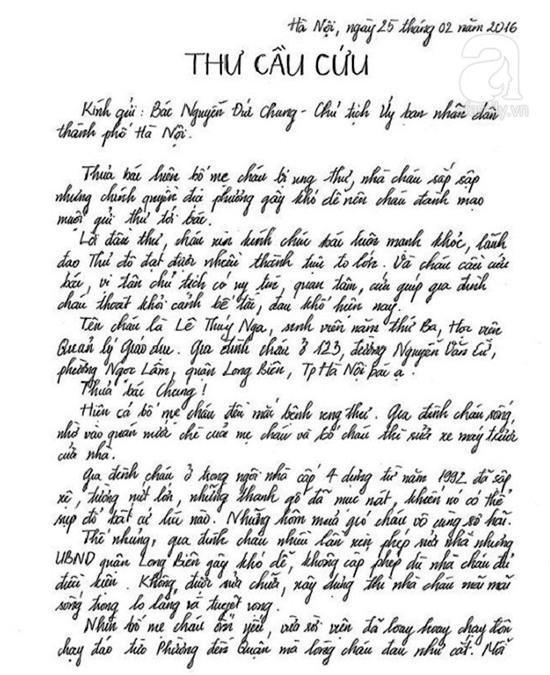 Hà Nội, ngày 25 tháng 02 năm 2016
THƯ CẦU CỨU
Kính gửi: Bác Nguyễn Đức Chung - Chủ tịch Ủy ban nhân dân
thành phố Hà Nội.
Thưa bác hiện bố mẹ cháu bị ung thư, nhà cháu sắp sập
nhưng chính quyền địa phương gây khó dễ nên cháu đánh mạo
muội gửi thư tới bác.
Lời đầu thư, cháu xin kính chúc bác luôn mạnh khỏe, lãnh
đạo Thủ đô đạt được nhiều thành tựu to lớn. Và cháu cầu cứu
bác, vị tân chủ tịch có uy tín, quan tâm, cứu giúp gia đình
cháu thoát khỏi cảnh bế tắc, đau khổ hiện nay.
Tên cháu là Lê Thúy Nga, sinh viên năm thứ Ba, Học viện
Quản lý Giáo dục. Gia đình cháu ở 123, đường Nguyễn Văn Cừ,
phường Ngọc Lâm, quận Long Biên, Tp Hà Nội bác ạ.
Thưa bác Chung!
Hiện cả bố mẹ cháu đều mắc bệnh ung thư. Gia đình cháu sống
nhờ vào quán nước chè của mẹ cháu và bố cháu thì sửa xe máy trước
cửa nhà.
Gia đình cháu ở trong ngôi nhà cấp 4 dựng từ năm 1992 đã sập
xệ, tường nứt lớn, những thanh gỗ đã mục nát, khiến nó có thể
sụp đổ bất cứ lúc nào. Những hôm mưa gió cháu vô cùng sợ hãi.
Thế nhưng, gia đình cháu nhiều lần xin phép sửa nhà nhưng
UBND quận Long Biên gây khó dễ, không cấp phép dù nhà cháu đủ
điều kiện. Không được sửa chữa, xây dựng thì nhà cháu mãi mãi
sống trong lo lắng và tuyệt vọng.
Nhìn bố mẹ cháu ốm yếu, vừa rời viện đã loay hoay chạy đôn
chạy đáo từ Phường đến Quận mà lòng cháu đau như cắt. Mỗi